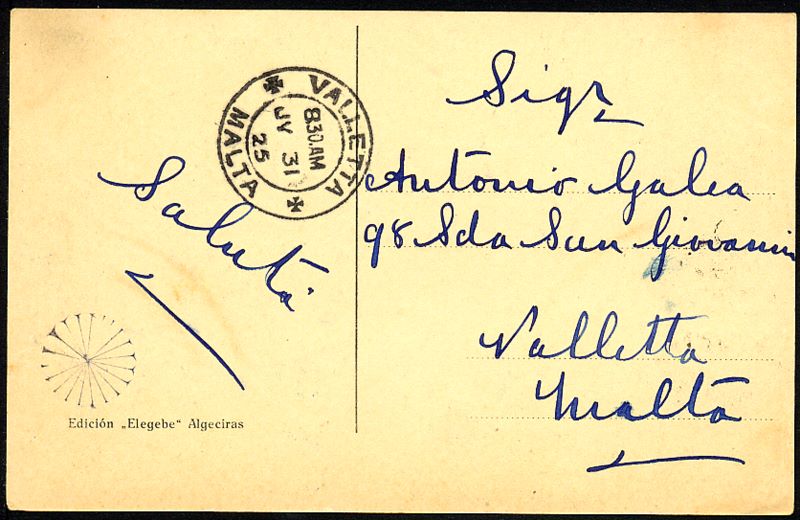 VALLETTA
MALTA
8.30.AM
JY 31
25
Saluti
Edición „Elegebe“ Algeciras
Sigr
Antonio Galea
98 Sda San Giovanni
Valletta
Malta